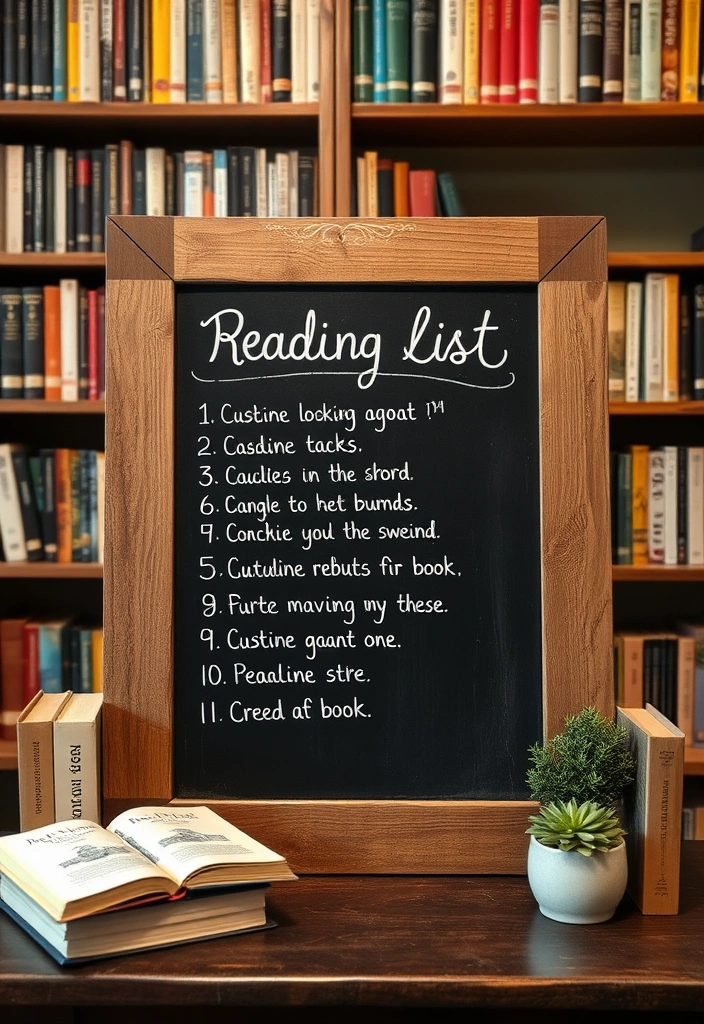 Reading list
1. Custine locking agoat
2. Casdine tacks.
3. Cauclies in the shord.
6. Cangle to het bumds.
9. Conckie you the sweind.
5. Cutuline rebuts fir book,
9. Furte maving my these.
9. Custine gaant one.
10. Peaaline stre.
11. Creed af book.